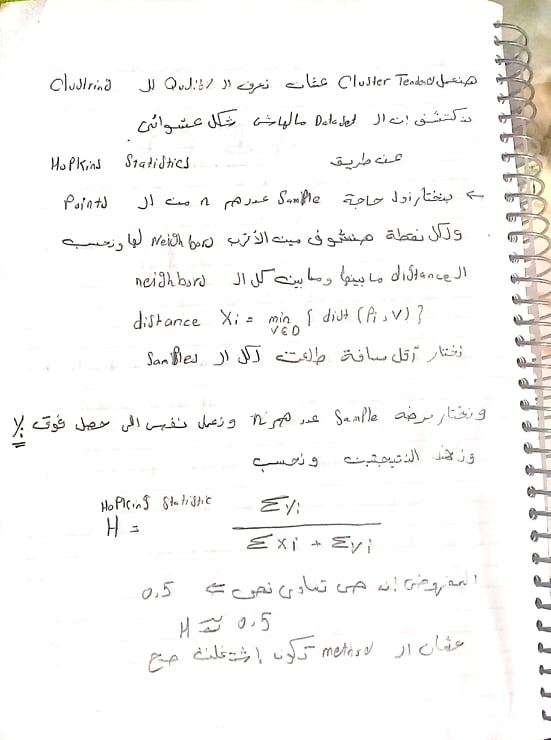 هنعمل Cluster Tendency عشان نعرف ال Quality لل Clustring
بنكتشف ان ال Dataset مالهاش شكل عشوائى
عن طريق Hopkins Statistics
← بنختار اول حاجة Sample عددهم n من ال Points
ولكل نقطة هنشوف مين الأقرب Neighbors لها ونحسب
ال distance ما بينها وما بين كل ال neighbors
distance Xi = min v∈D { dist (Pi, v) }
نختار أقل مسافة طلعت لكل ال Samples
ونختار برضه Sample عددهم n ونعمل نفس الى حصل فوق Yi
ونحسب
Hopkins Statistic
H = Σyi / Σxi + Σyi
المفروض انه هى تساوى نص ⇐ 0.5
H ≅ 0.5
عشان ال method تكون اشتغلت صح